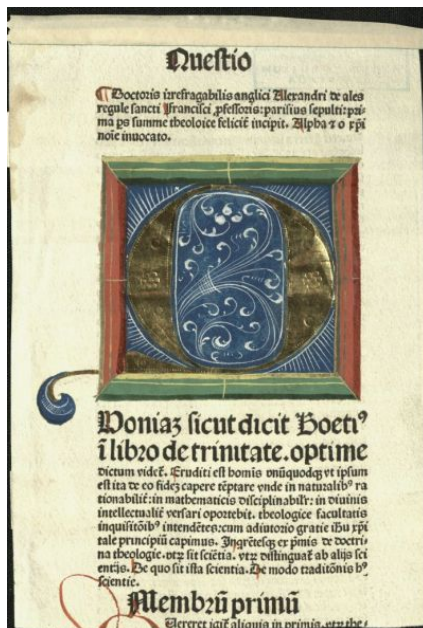 Questio
Doctoris irrefragabilis anglici Alexandri de ales
regule sancti Francisci ꝓfessoris: parisius sepulti: pri-
ma ps summe theoloice feliciť incipit. Alpha ⁊ o xp̄i
noīe inuocato.
Q
Uoniaꝫ sicut dicit Boetiꝰ
ī libro de trinitate. optime
dictum videť. Eruditi est homīs vnūquodqꝫ vt ipsum
est ita de eo fideꝫ capere tēptare vnde in naturalibꝰ ra
tionabiliť: in mathematicis disciplinabilr̄: in diuinis
intellectualiť versari oportebit. theologice facultatis
inquisitōibꝰ intendētes: cum adiutorio gratie ih̄u xp̄i
tale principiū capimus. Inqrētesqꝫ ex p̄mis de doctri
na theologie. vtꝝ sit sciētia. vtꝝ distinguať ab alijs sci
entijs. De quo sit ista scientia. De modo traditōnis hꝰ
scientie.
Membrū primū
aliquis in primis. vtꝝ the-